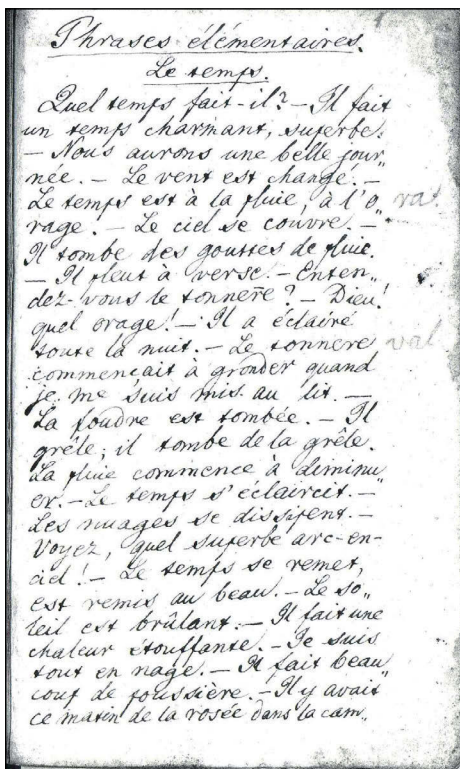 Phrases élémentaires.
Le temps.
Quel temps fait-il? — Il fait
un temps charmant, superbe.
— Nous aurons une belle jour„
née. — Le vent est changé. —
Le temps est à la pluie, à l'o„
rage. — Le ciel se couvre. —
Il tombe des gouttes de pluie.
— Il pleut à verse. — Enten„
dez-vous le tonnerre? — Dieu!
quel orage! — Il a éclairé
toute la nuit. — Le tonnere
commençait à gronder quand
je me suis mis au lit. —
La foudre est tombée. — Il
grêle; il tombe de la grêle.
La pluie commence à diminu„
er. — Le temps s'éclaircit. —
Les nuages se dissipent. —
Voyez, quel superbe arc-en-
ciel! — Le temps se remet,
est remis au beau. — Le so„
leil est brûlant. — Il fait une
chaleur étouffante. — Je suis
tout en nage. — Il fait beau„
coup de poussière. — Il y avait
ce matin de la rosée dans la cam„